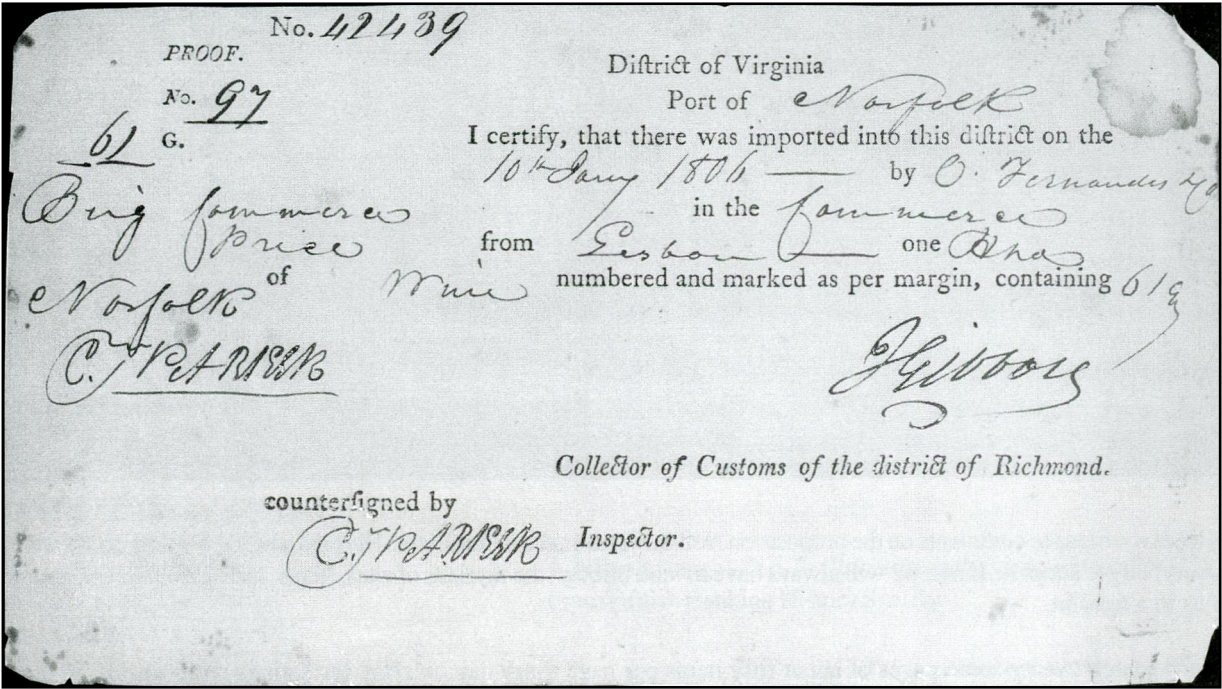 No. 42439
PROOF.
No. 97
61 G.
Brig Commerce
Price
Norfolk
C. PARKER
Diſtrict of Virginia
Port of Norfolk
I certify, that there was imported into this diſtrict on the
10th Jany 1806 by O. Fernandes
in the Commerce
from Lisbon one
of Wine numbered and marked as per margin, containing 61 G
J Gibbons
Collector of Cuſtoms of the diſtrict of Richmond.
counterſigned by
C. PARKER Inſpector.